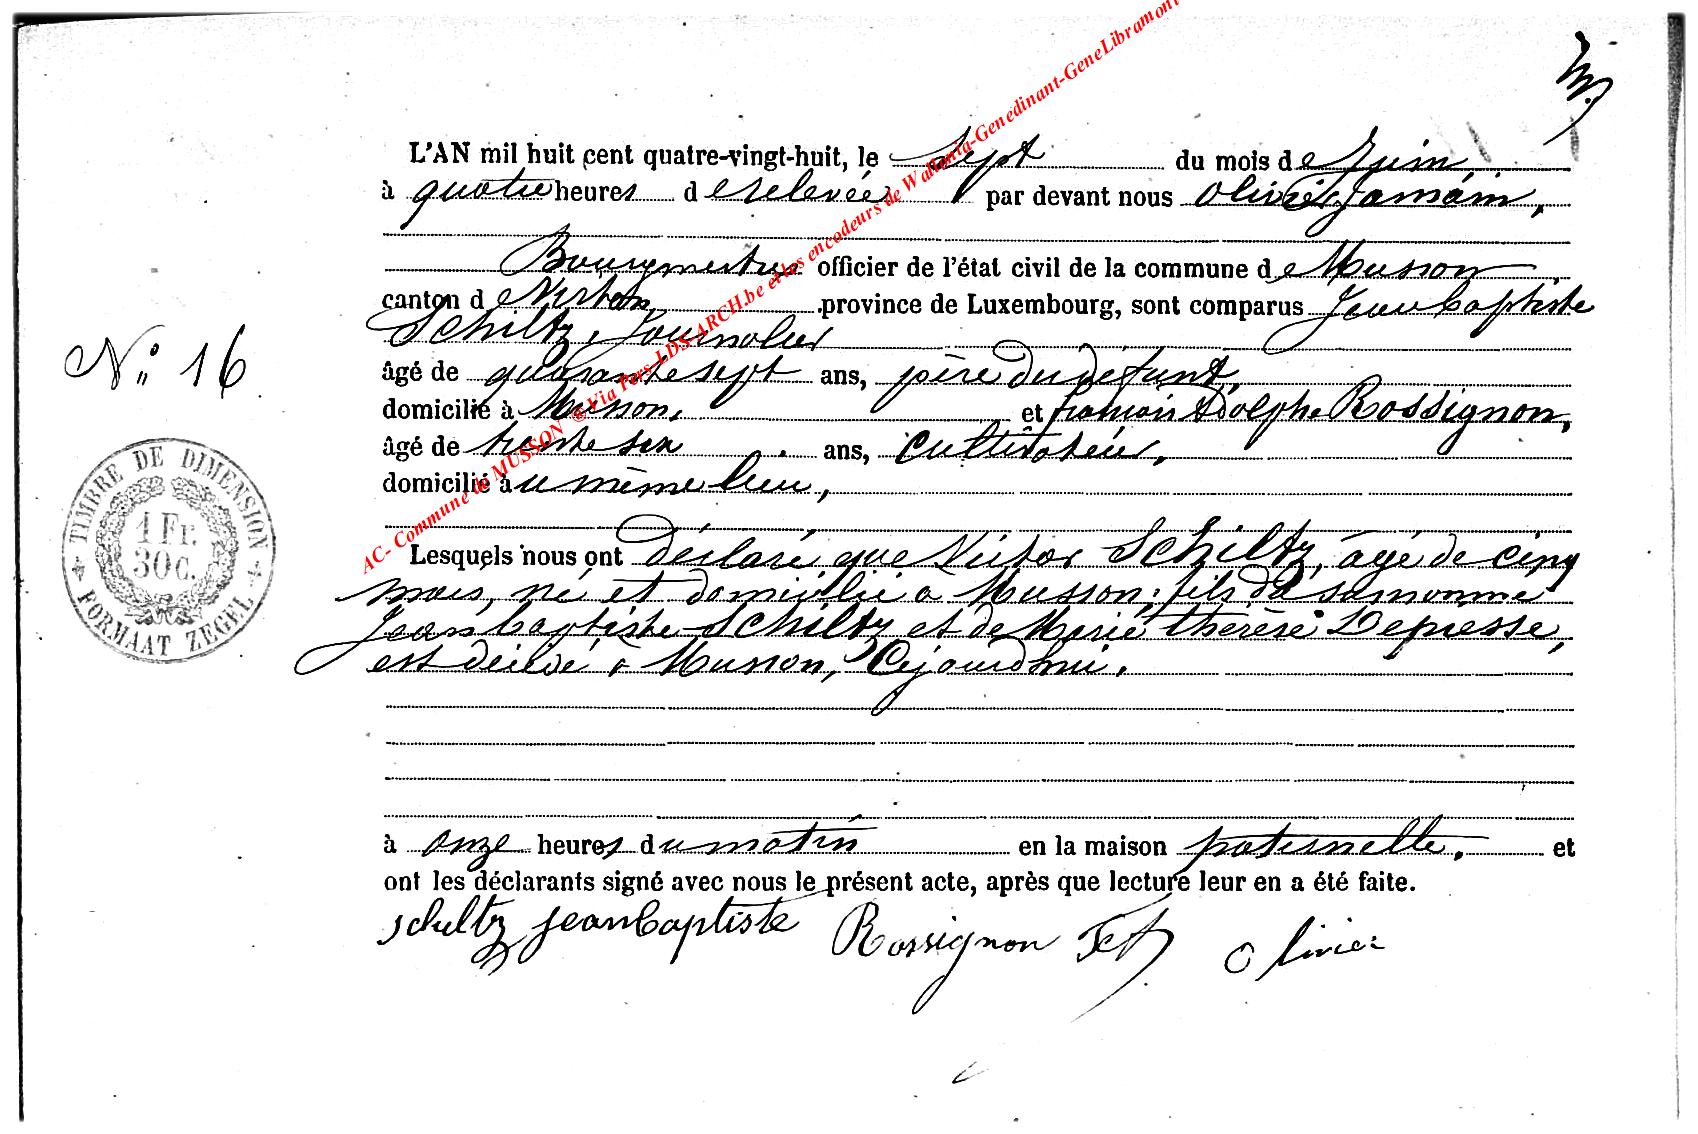 L'AN mil huit cent quatre-vingt-huit, le sept du mois de Juin
à quatre heures de relevée par devant nous Olivier Jamain,
Bourgmestre officier de l'état civil de la commune de Musson
canton de Virton, province de Luxembourg, sont comparus Jean baptiste
Schiltz, Journalier
âgé de quarante sept ans, père du défunt,
domicilié à Musson, et francois Adolphe Rossignon,
âgé de trente six ans, Cultivateur,
domicilié au même lieu,
N° 16
TIMBRE DE DIMENSION
1 Fr.
30 C.
FORMAAT ZEGEL
Lesquels nous ont déclaré que Victor Schiltz, âgé de cinq
mois, né et domicilié à Musson, fils du surnommé
Jean baptiste Schiltz et de Marie thérèse Depiesse,
est décédé à Musson, Cejourdhui,
à onze heures du matin en la maison paternelle. et
ont les déclarants signé avec nous le présent acte, après que lecture leur en a été faite.
schiltz jean baptiste Rossignon Olivier
AC- Commune de MUSSON @ Via Pers-LDS-ARCH.be et les encodeurs de Wallonia-Genedinant-GeneLibramont